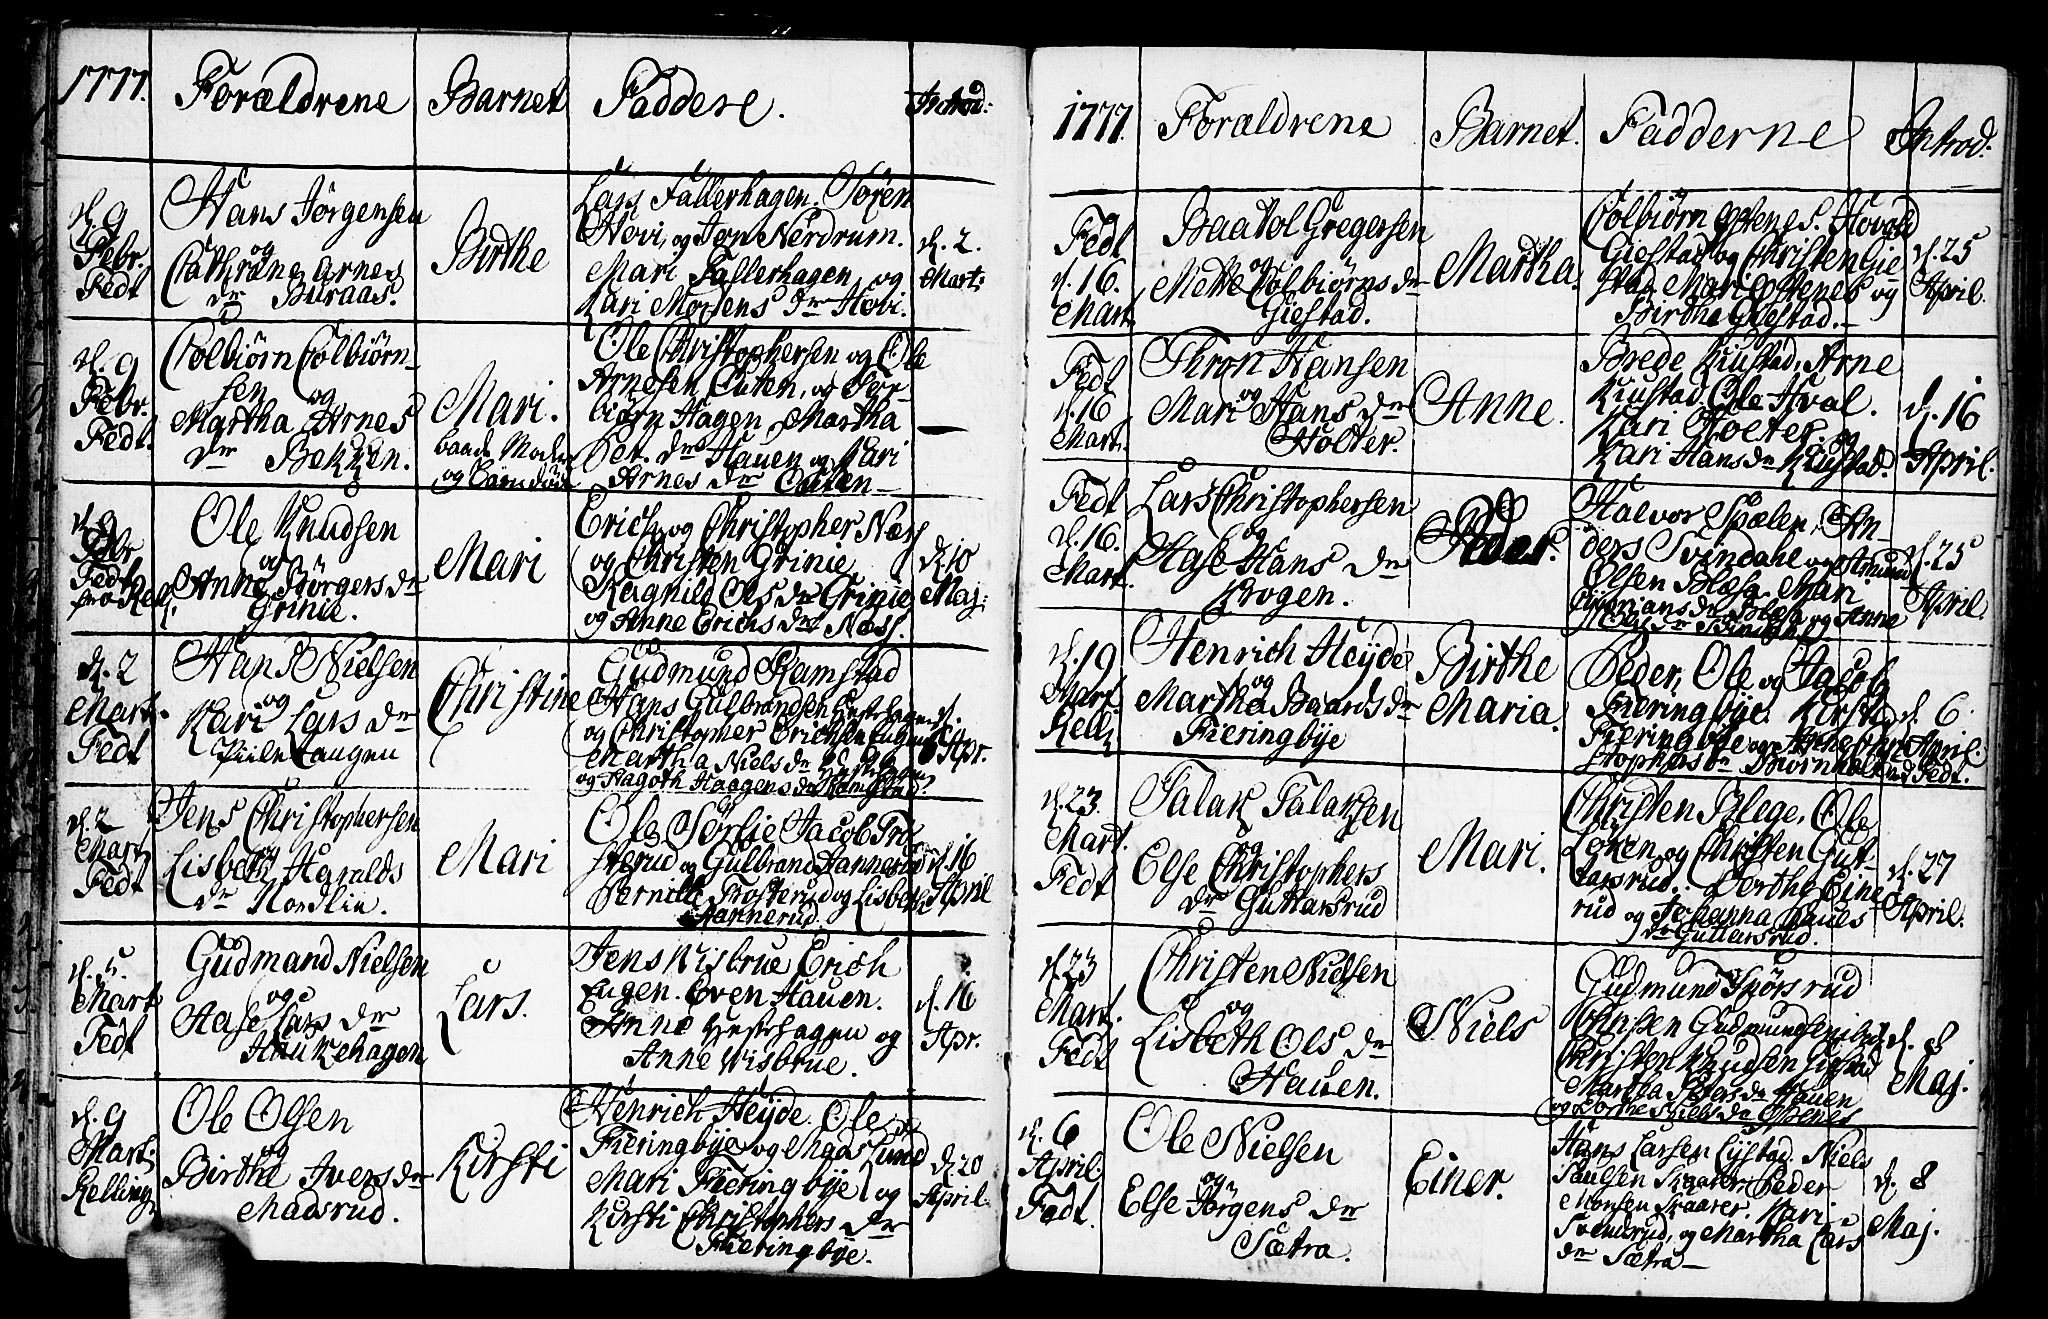 1777. Forældrene Barnet Faddere. Introd:
d. 9 Febr. Fedt
Hans Jørgensen
og
Cathrane Arnes
dr Buraas.
Birthe
Lars Fallerhagen. Søren
Hovi, og Jon Nerdrum.
Mari Fallerhagen og
Kari Mortens dr Hovi.
d. 2. Mart:
d. 9 Febr. Fedt.
Colbiørn Colbiørn-
sen og
Martha Arnes
dr Bekken.
Mari.
baade Moder
og Barn døde
Ole Christophersen og Ole
Arnesen Outen, og Tor-
biørn Hagen. Martha
Pet. dr Hauen og Kari
Arnes dr Outen-
—
d. 9 Febr Fedt
Ole Knudsen
og
Anne Børgers dr
Grinie.
Mari
Erich og Christopher Næss
og Christen Grinie
Ragnild Ols dr Grinie
og Anne Erichs dr Næss.
d. 10 Maj:
d. 2 Mart. Fedt
Hans Nielsen
og
Kari Lars dr
Langen
Christine
Gudmund Ramstad
Hans Gulbrandsen
og Christopher Erichsen
Martha Niels dr
og Haagens dr
Apr.
d. 2 Mart Fedt
Jens Christophersen
og
Lisbeth Haralds
dr Nordlie.
Mari
Ole Sørlie Jacob Tro-
sterud og Gulbrand Hannerud
Pernille Trosterud og Lisbeth
Hannerud.
d. 16 April
d. 5. Mart Fedt
Gudmand Nielsen
og
Aase Lars dr
Haukehagen
Lars.
Jens Wisbrue Erich
Eugen. Even Hauen.
Anne Hestehagen og
Anne Wisbrue.
d. 16 Apr.
d. 9 Mart: Relling
Ole Olsen
og
Birthe Ivers dr
Madsrud.
Kirsti
Henrich Heyde. Ole
Fieringbye og Mads Lund
Mari Fieringbye og
Kirsti Christophers dr
Fieringbye.
d. 20 April.
1777. Forældrene Barnet. Fadderne Introd:
Fedt d. 16. Mart.
Baarol Gregersen
og
Mette Colbiørns dr
Giestad.
Martha.
Colbiørn Opstenes. Hovard
Giestad og Christen Gie
stad Mari Opstenes og
Birthe Giestad.—
d. 25 April.
Fedt d. 16 Mart.
Thron Hansen
og
Mari Hans dr
Holter.
Anne.
Brede Kiustad, Arne
Kiustad. Ole Hval.
Kari Holter. og
Kari Hans dr Kiustad.
d. 16 April.
Fedt d. 16. Mart.
Lars Christophersen
og
Aase Hans dr
Krogen.
Peder.
Halvor Spælen, An-
ders Svindahl og Amund
Olsen Blæsa Mari
Cyprians dr Blesa og Anne
d. 25 April
d. 19 Mart. Relli
Henrich Heyde
og
Martha Baards dr
Fieringbye
Birthe
Maria.
Peder, Ole og Jacob
Fieringbye. Kirsti
Fieringbye og Anne Chri
stophers dr Biørnholt
d. 6. April. Fedt.
d. 23. Mart. Fedt
Falak Falaksen
og
Else Christophers
dr Guttarsrud
Mari.
Christen Blege, Ole
Løken og Christen Gut-
tarsrud. Berthe Eine
rud og Johanna Paules
dr Guttarsrud.
d. 27 April.
d. 23 Mart. Fedt
Christen Nielsen
og
Lisbeth Ols dr
Hauen.
Niels
Gudmund Spørsrud
Gudmundsen ibid
Christen Knudsen Gistad
Martha Peders dr Hauen
og Birthe Niels dr Opstenes
d. 8 Maj.
d. 6 April. Fedt.
Ole Nielsen
og
Else Jørgens dr
Sætra.
Einer.
Hans Larsen Lystad. Niels
Paulsen Skaarer. Peder
Monsen Skaarer. Kari
Svensrud, og Martha Lars
dr Sætra—
d. 8 Maj.